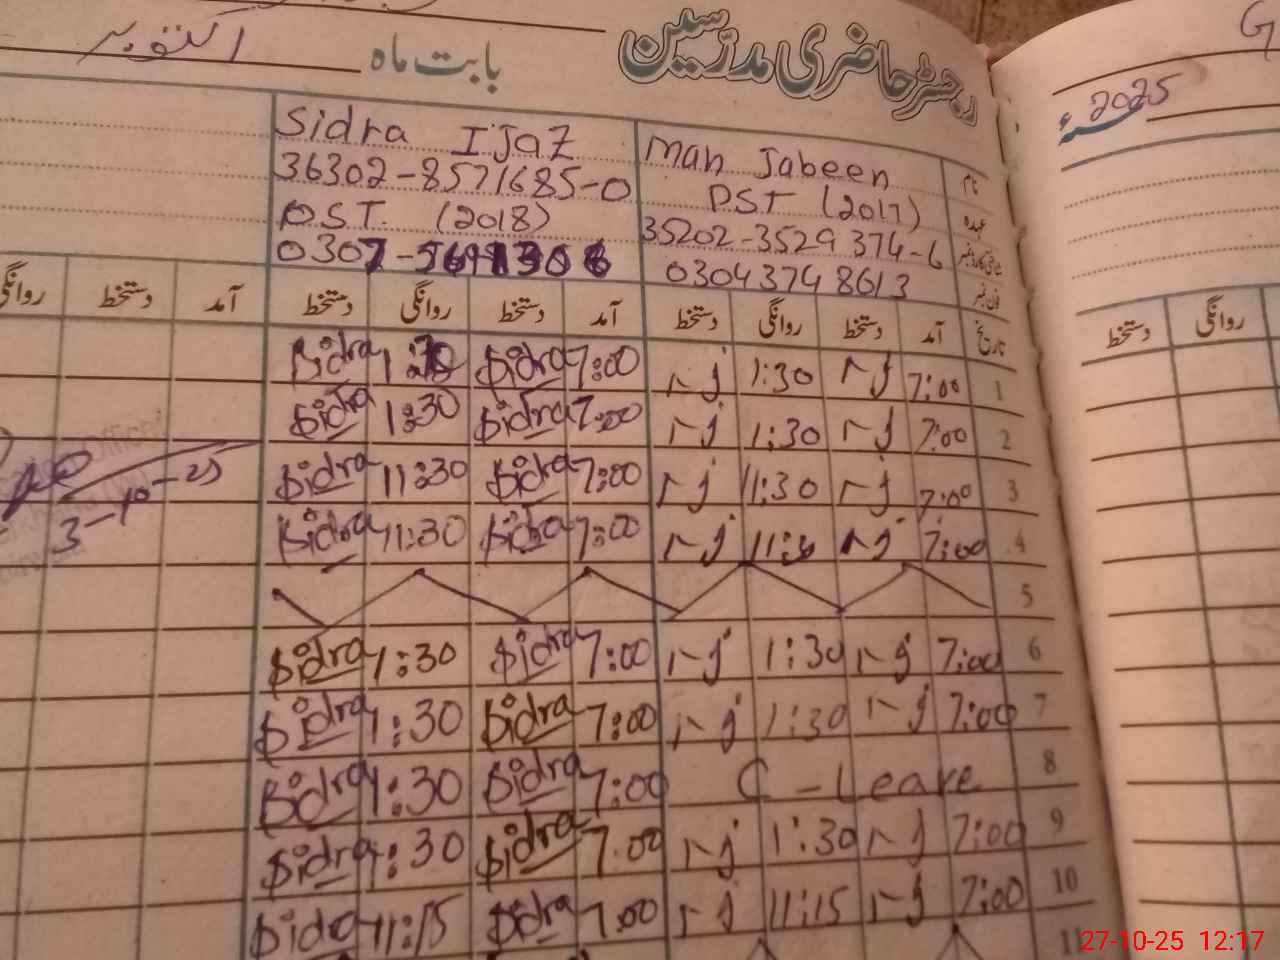 رجسٹر حاضری مدرسین بابت ماہ اکتوبر
2025ء
نام Mah Jabeen Sidra IJaz
عہدہ PST (2017) 36302-8571685-0
شناختی کارڈ نمبر 35202-3529374-6 P.ST. (2018)
فون نمبر 03043748613 0307-
تاریخ آمد دستخط روانگی دستخط آمد دستخط روانگی دستخط آمد دستخط روانگی
روانگی دستخط
1 7:00 1:30 7:00 Sidra Sidra
2 7:00 1:30 7:00 Sidra 1:30 Sidra
3 7:00 11:30 7:00 Sidra 11:30 Sidra
3-10-25
4 7:00 7:00 Sidra 11:30 Sidra
5
6 7:00 1:30 7:00 Sidra 1:30 Sidra
7 7:00 1:30 7:00 Sidra 1:30 Sidra
8 C-Leave 7:00 Sidra 1:30 Sidra
9 7:00 1:30 7:00 Sidra 1:30 Sidra
10 7:00 11:15 7:00 Sidra 11:15 Sidra
11
27-10-25 12:17